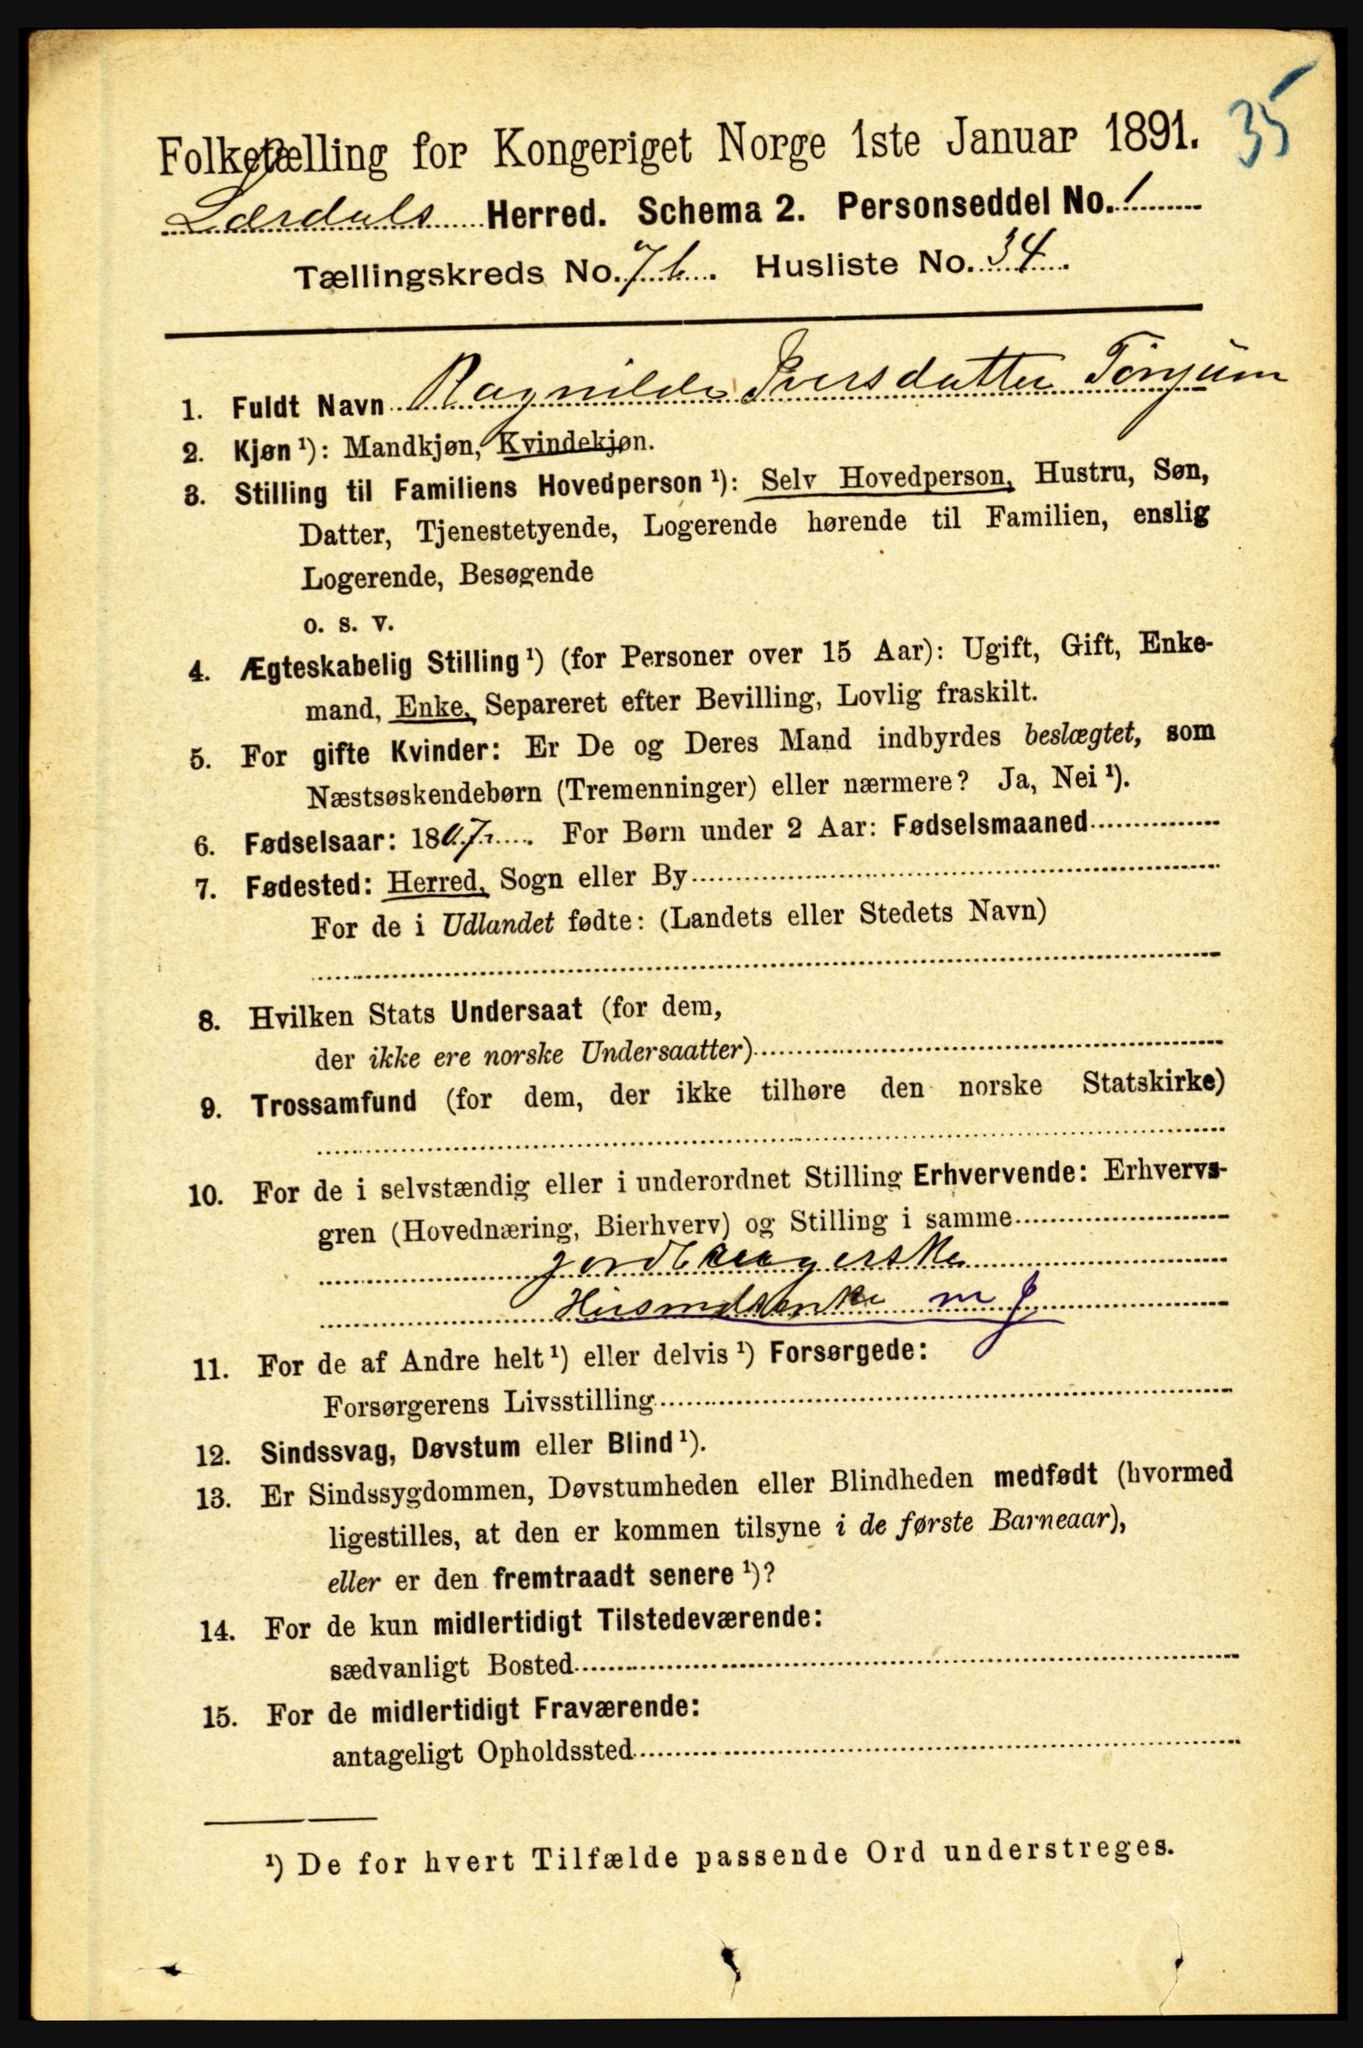 35
Folketælling for Kongeriget Norge 1ste Januar 1891.
Lærdals Herred. Schema 2. Personseddel No. 1
Tællingskreds No. 7 b. Husliste No. 34.
1. Fuldt Navn Ragnilda Iversdatter Tønjum
2. Kjøn ¹): Mandkjøn, Kvindekjøn.
3. Stilling til Familiens Hovedperson ¹): Selv Hovedperson, Hustru, Søn,
Datter, Tjenestetyende, Logerende hørende til Familien, enslig
Logerende, Besøgende
o. s. v.
4. Ægteskabelig Stilling ¹) (for Personer over 15 Aar): Ugift, Gift, Enke-
mand, Enke, Separeret efter Bevilling, Lovlig fraskilt.
5. For gifte Kvinder: Er De og Deres Mand indbyrdes beslægtet, som
Næstsøskendebørn (Tremenninger) eller nærmere? Ja, Nei ¹).
6. Fødselsaar: 1807. For Børn under 2 Aar: Fødselsmaaned
7. Fødested: Herred, Sogn eller By
For de i Udlandet fødte: (Landets eller Stedets Navn)
8. Hvilken Stats Undersaat (for dem,
der ikke ere norske Undersaatter)
9. Trossamfund (for dem, der ikke tilhøre den norske Statskirke)
10. For de i selvstændig eller i underordnet Stilling Erhvervende: Erhvervs-
gren (Hovednæring, Bierhverv) og Stilling i samme
jordbrugerske
Husmdsenke m J
11. For de af Andre helt ¹) eller delvis ¹) Forsørgede:
Forsørgerens Livsstilling
12. Sindssvag, Døvstum eller Blind ¹).
13. Er Sindssygdommen, Døvstumheden eller Blindheden medfødt (hvormed
ligestilles, at den er kommen tilsyne i de første Barneaar),
eller er den fremtraadt senere ¹)?
14. For de kun midlertidigt Tilstedeværende:
sædvanligt Bosted
15. For de midlertidigt Fraværende:
antageligt Opholdssted
¹) De for hvert Tilfælde passende Ord understreges.